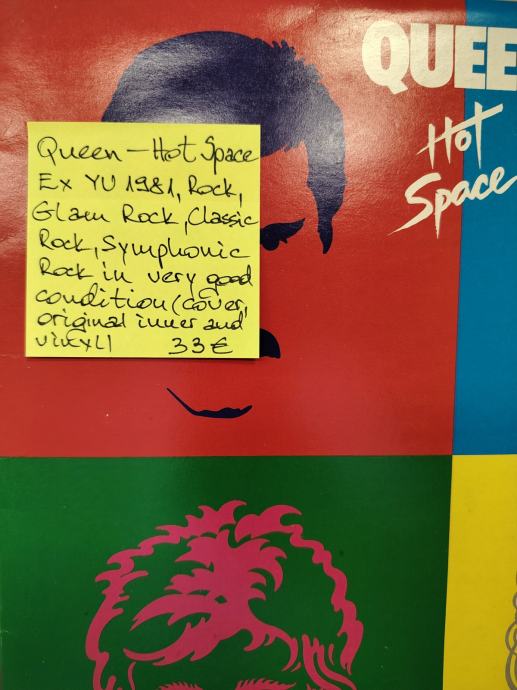 QUEE
Hot
Space
Queen - Hot Space
Ex YU 1981, Rock,
Glam Rock, Classic
Rock, Symphonic
Rock in very good
condition (cover,
original inner and
vinyl) 33€